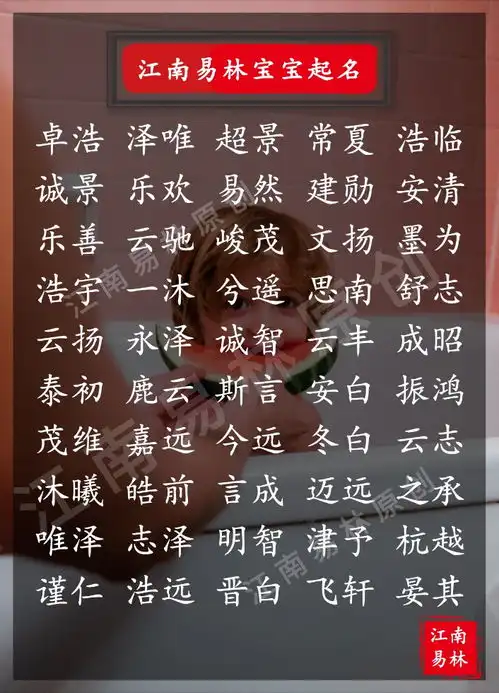 江南易林宝宝起名
卓浩 泽唯 超景 常夏 浩临
诚景 乐欢 易然 建勋 安清
乐善 云驰 峻茂 文扬 墨为
浩宇 一沐 兮遥 思南 舒志
云扬 永泽 诚智 云丰 成昭
泰初 鹿云 斯言 安白 振鸿
茂维 嘉远 今远 冬白 云志
沐曦 皓前 言成 迈远 之承
唯泽 志泽 明智 津予 杭越
谨仁 浩远 晋白 飞轩 晏其
江南易林原创
江南易林原创
江南易林原创
江南
易林